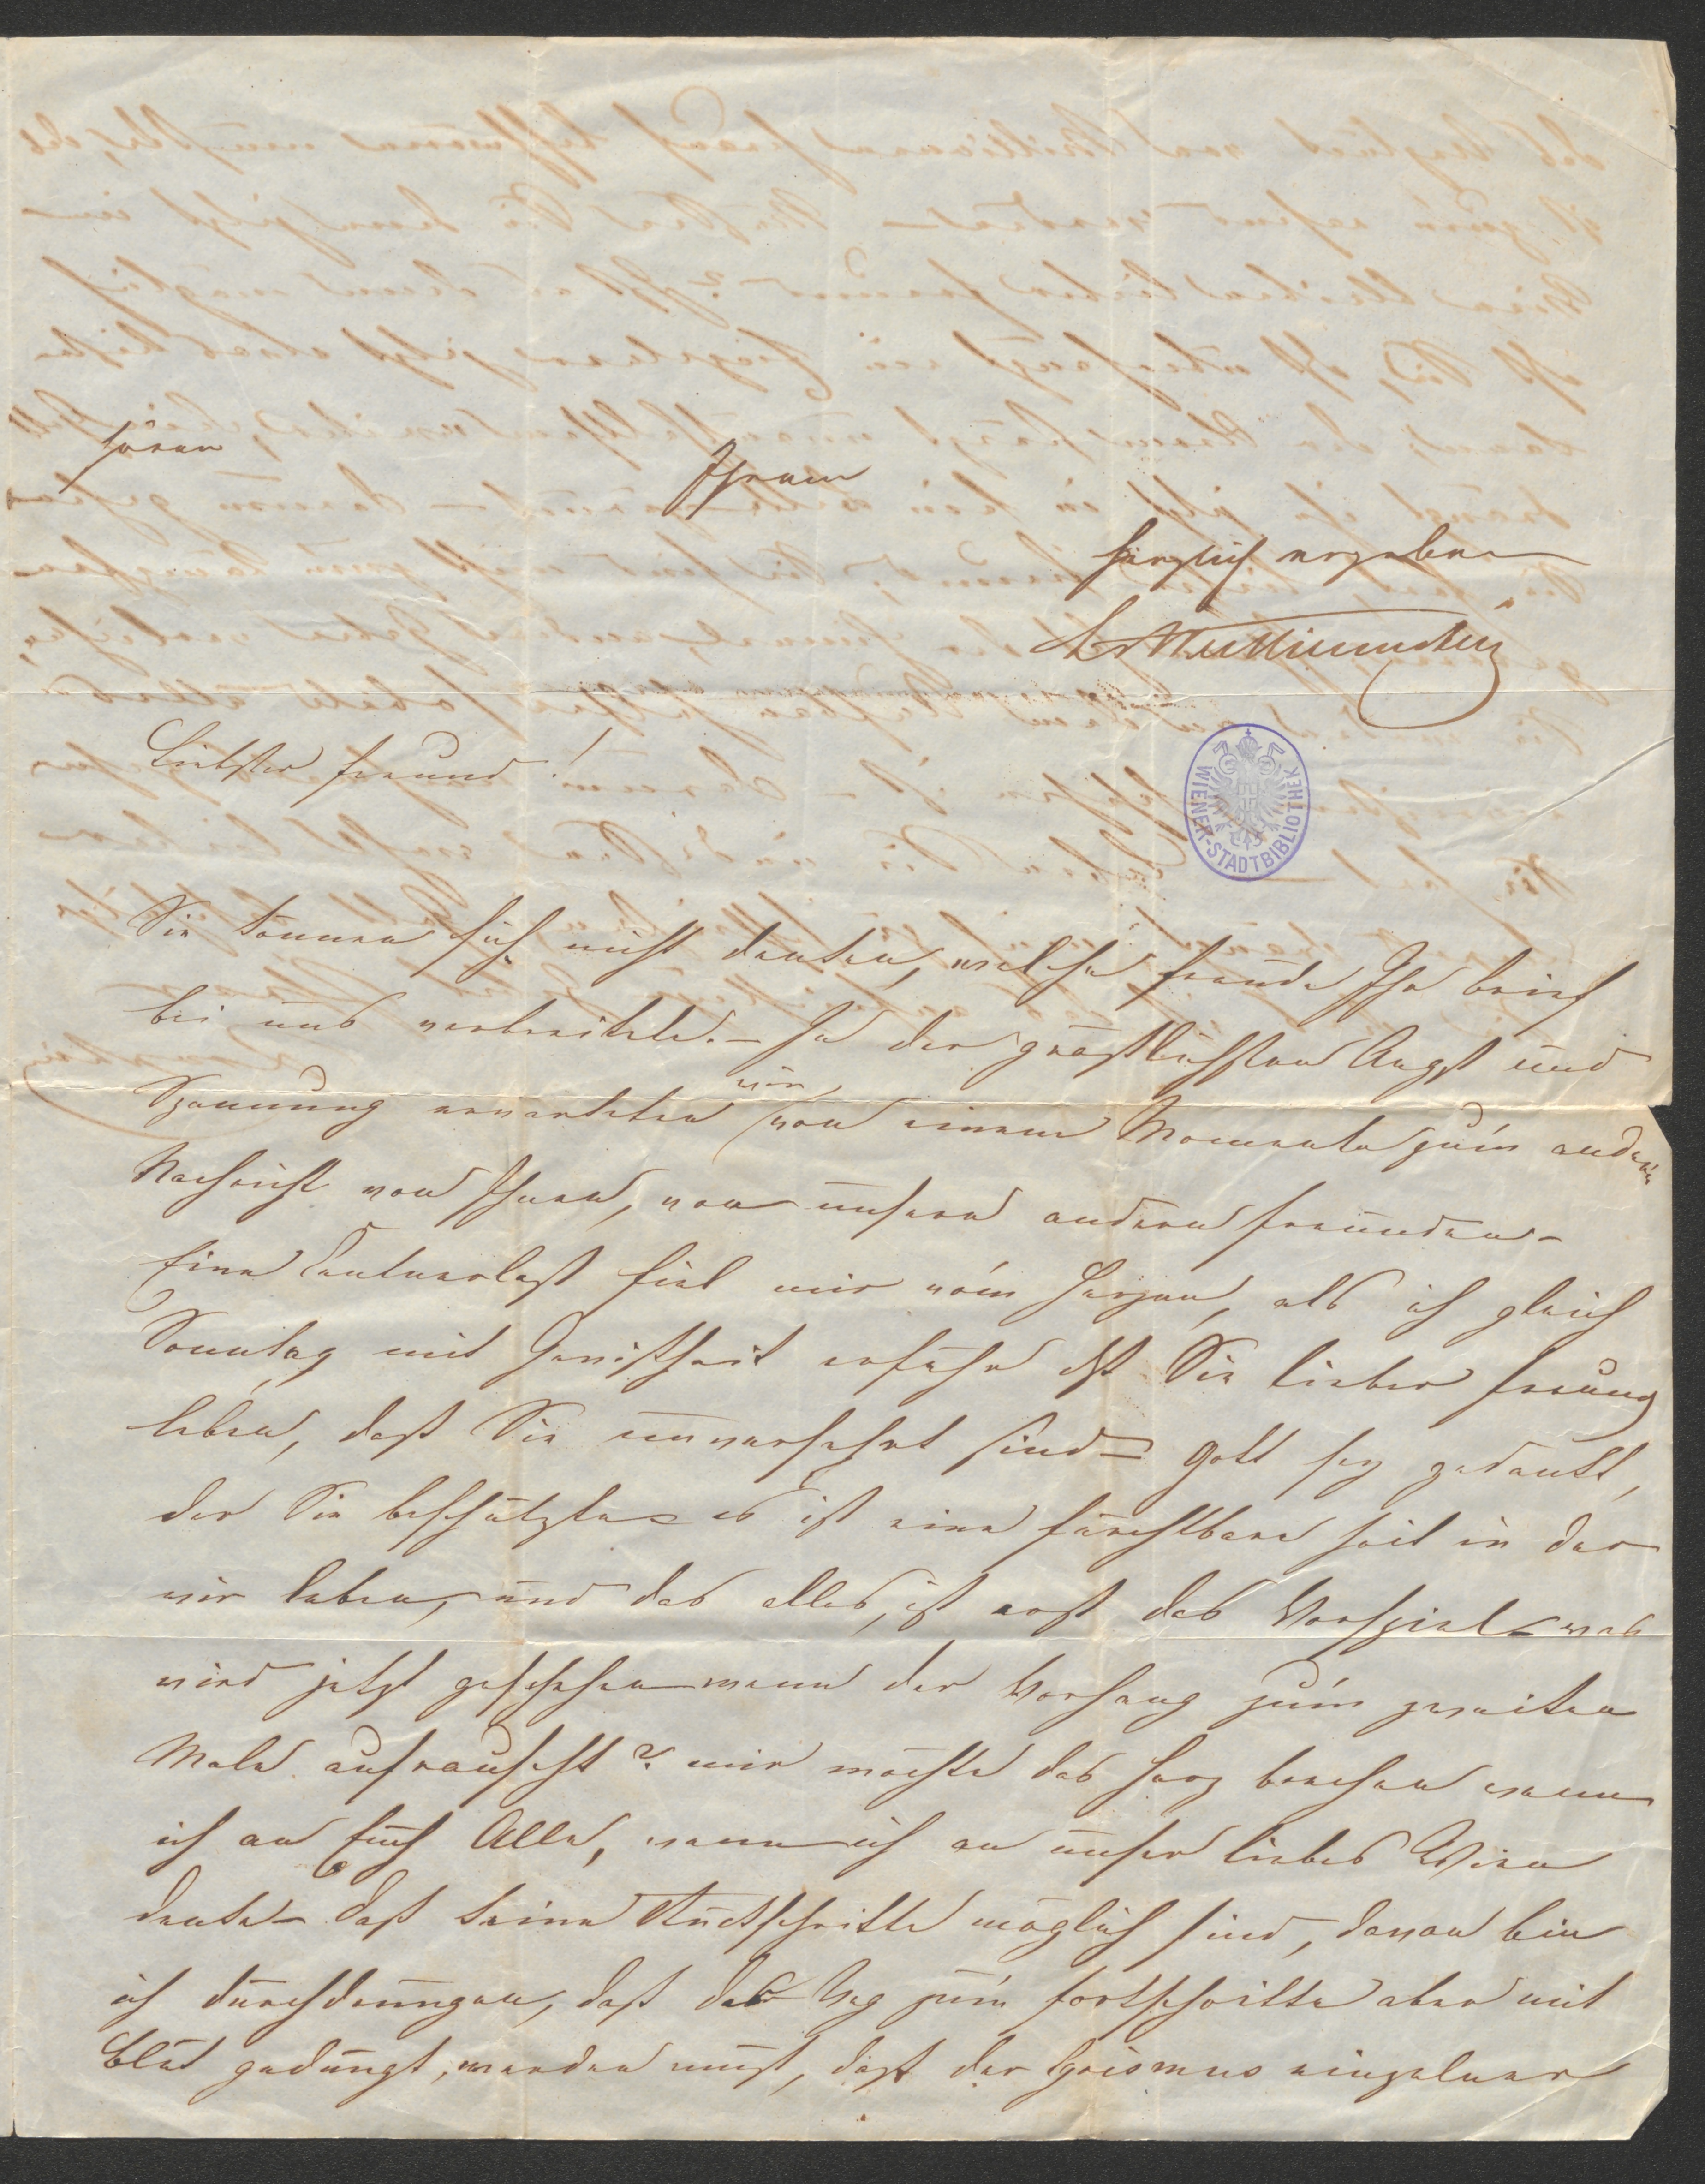 hören
Ihrem
herzlich ergebenen
Liebster Freund!
WIENER-STADTBIBLIOTHEK
Sie können sich nicht denken, welche Freude Ihr Brief
bei uns verbreitete. – In der grässlichsten Angst und
Spannung erwarteten wir von einem Momente zum andern
Nachricht von Ihnen, von unsern andern Freunden –
Eine Centnerlast fiel mir vom Herzen, als ich gleich
Sonntag mit Gewißheit erfuhr daß Sie lieber Freund
leben, daß Sie unversehrt sind – Gott sey gedankt,
der Sie beschützte – es ist eine furchtbare Zeit in der
wir leben, und das alles, ist erst das Vorspiel – was
wird jetzt geschehen wenn der Vorhang zum zweiten
Male aufrauscht? mir möchte das Herz brechen wenn
ich an Euch Alle, wenn ich an unser liebes Wien
denke – daß keine Rückschritte möglich sind, davon bin
ich durchdrungen, daß der Weg zum Fortschritte aber mit
Blut gedüngt, werden muß, daß der Egoismus einzelner